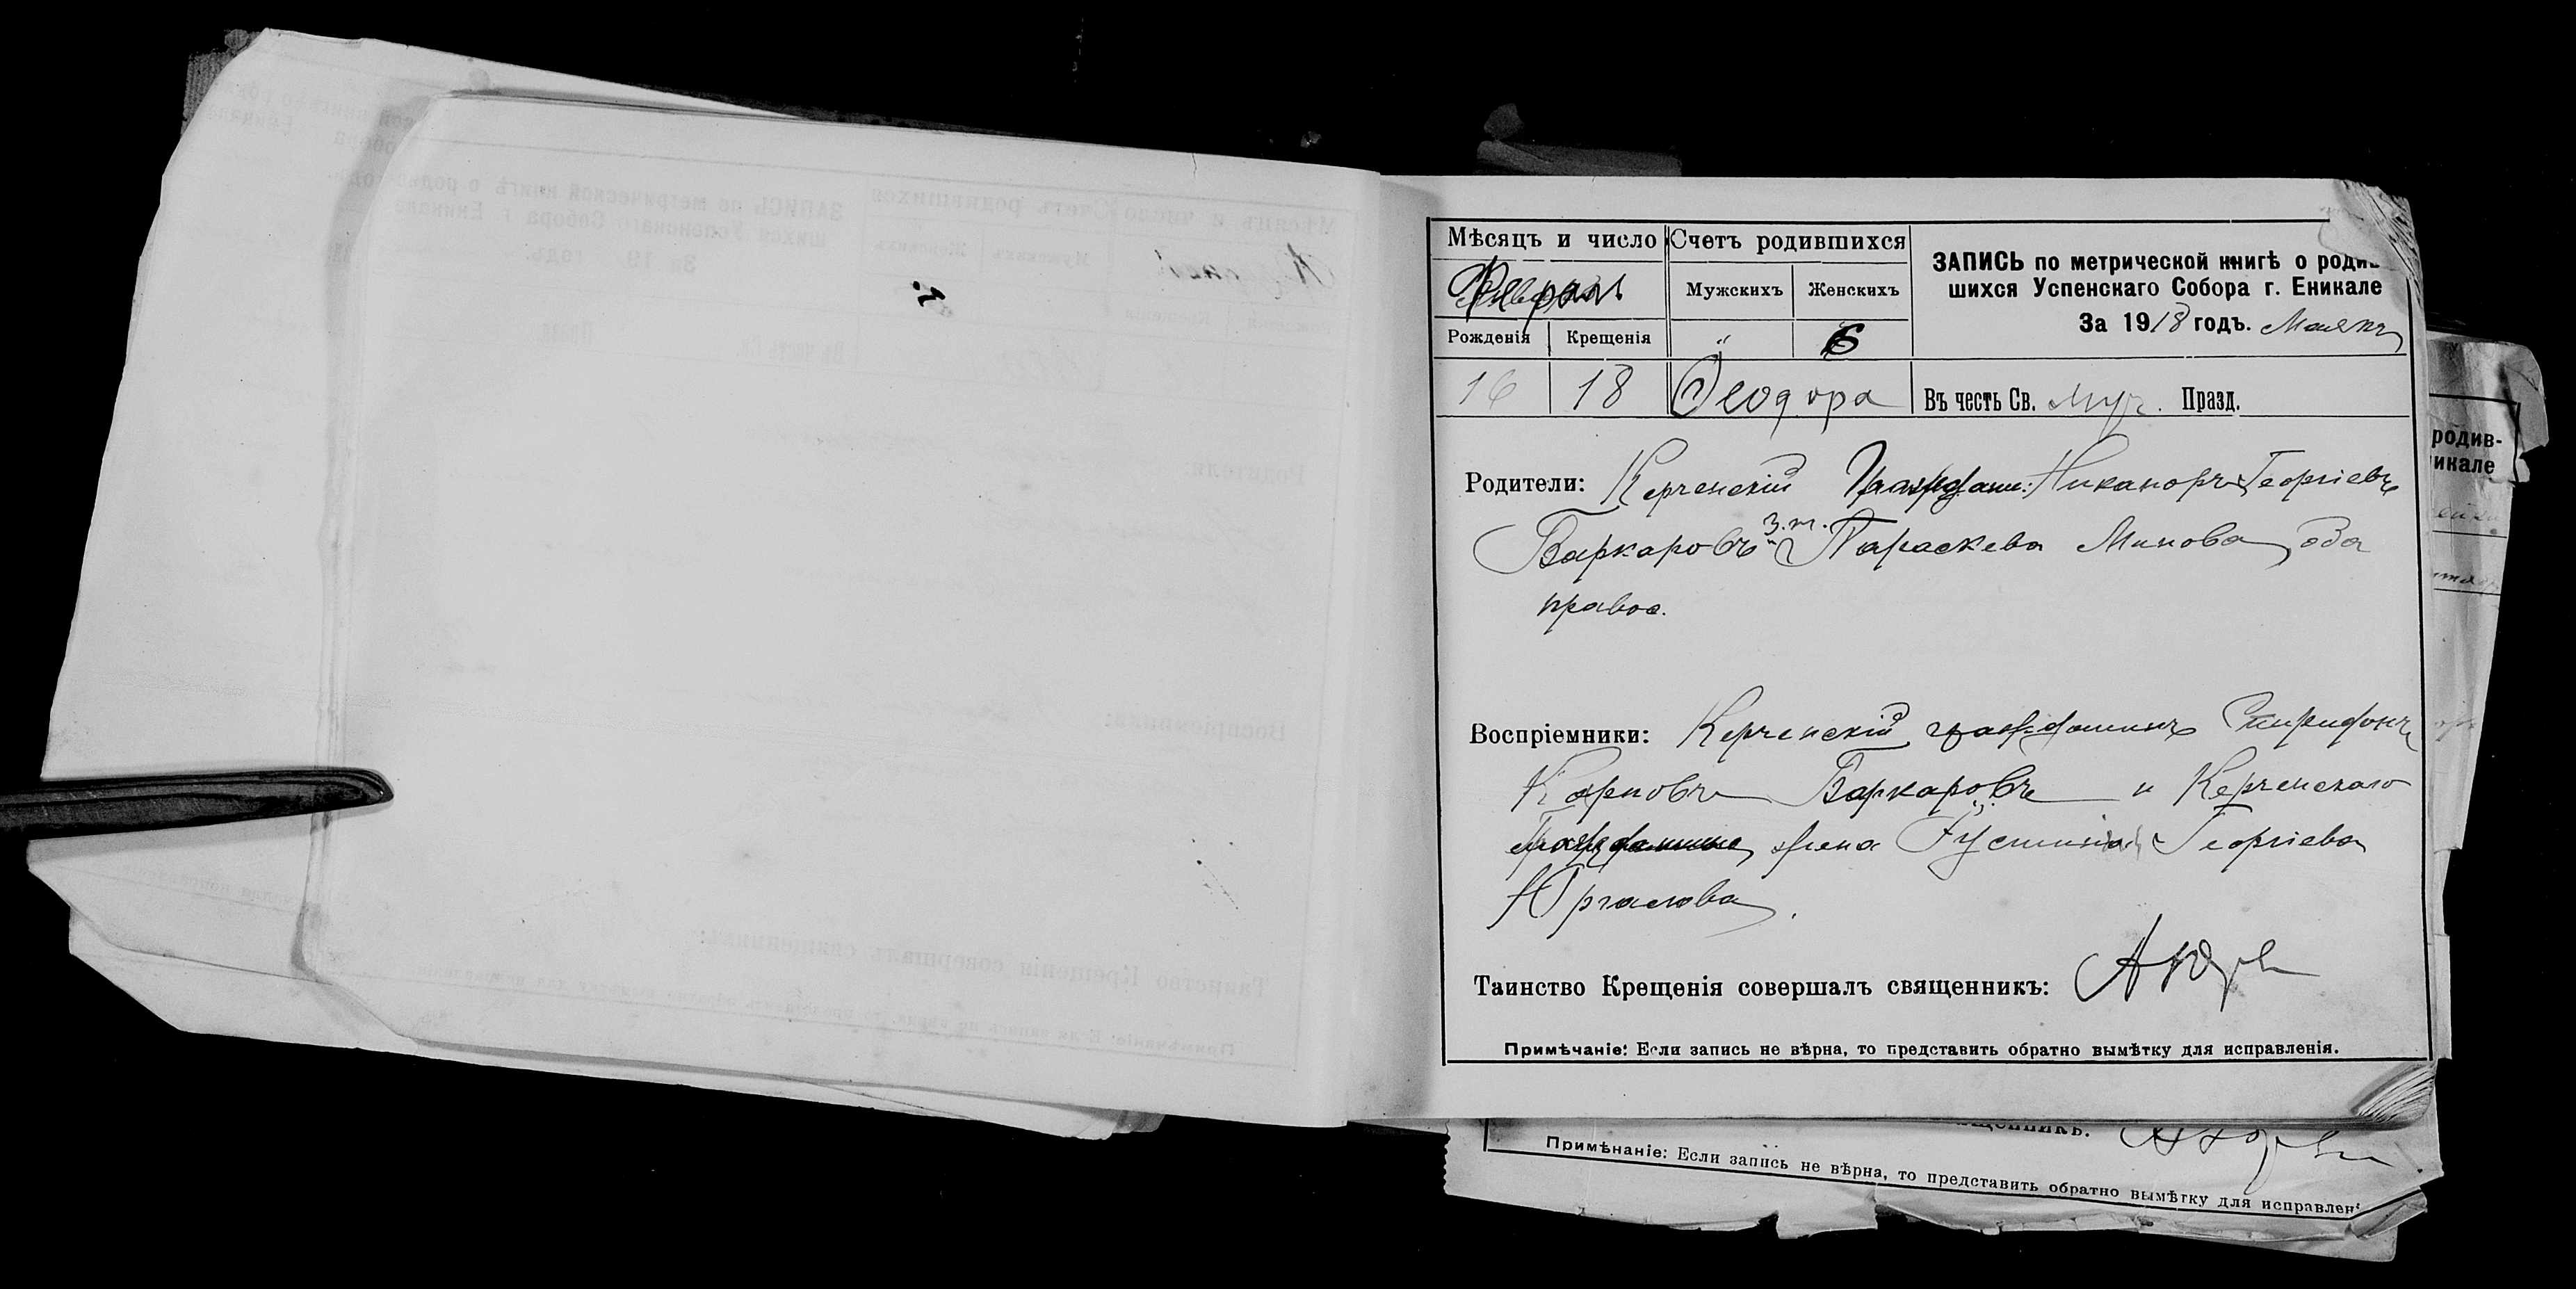 Мѣсяцъ и число
Счетъ родившихся
ЗАПИСЬ по метрической книгѣ о родив-
шихся Успенскаго Собора г. Еникале
За 1918 годъ. Маякъ
Февраль
Мужскихъ
Женскихъ
Рожденія
Крещенія
"
6
16
18
Ѳеодора
Въ честь Св. муч. Празд.
Родители: Керченскій Граждан: Никаноръ Георгіевъ
Баркаровъ и з. ж. Параскева Минова, оба
правос.
Воспріемники: Керченскій гражданинъ Спиридонъ
Карповъ Баркаровъ и Керченскаго
гражданина жена Іустина Георгіева
Таинство Крещенія совершалъ священникъ:
Примѣчаніе: Если запись не вѣрна, то представить обратно вымѣтку для исправленія.
родив-
икале
Примѣчаніе: Если запись не вѣрна, то представить обратно вымѣтку для исправлен